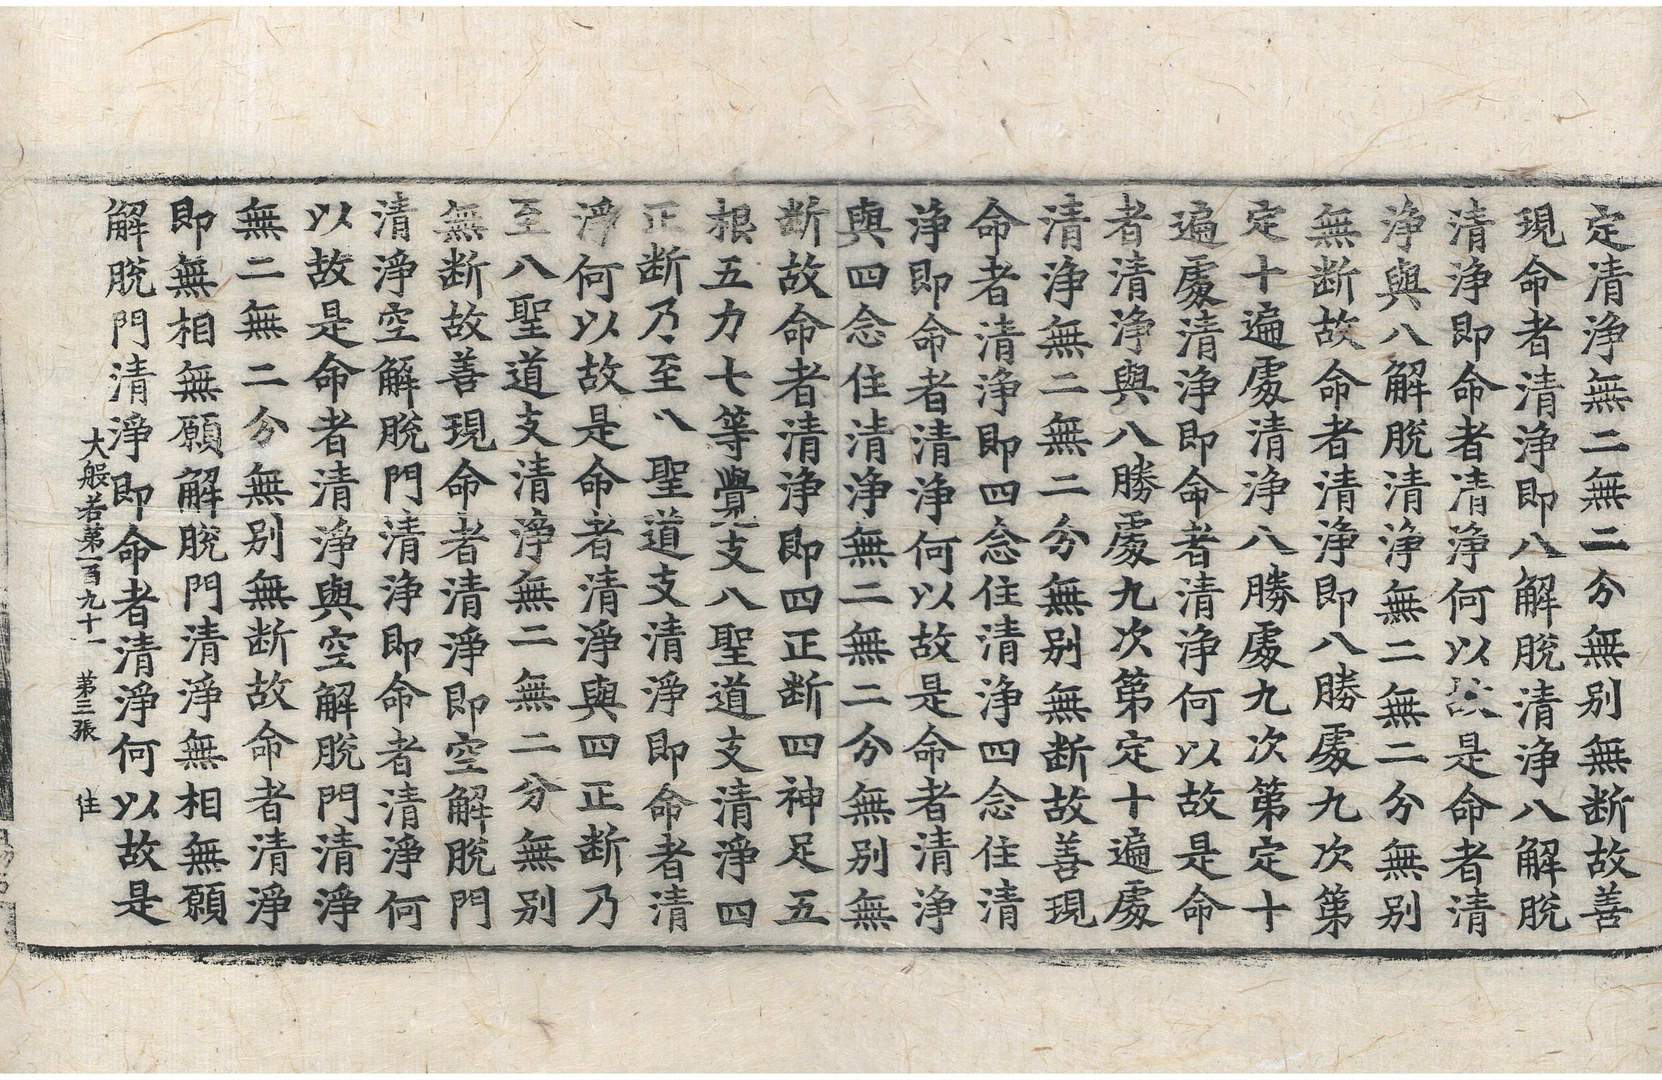 定清浄無二無二分無别無断故善
現命者清浄即八解脫清浄八解脫
清浄即命者清浄何以故是命者清
浄與八解脫清浄無二無二分無别
無断故命者清浄即八勝處九次第
定十遍處清浄八勝處九次第定十
遍處清浄即命者清浄何以故是命
者清浄與八勝處九次第定十遍處
清浄無二無二分無别無断故善現
命者清浄即四念住清浄四念住清
浄即命者清浄何以故是命者清浄
與四念住清浄無二無二分無别無
断故命者清浄即四正断四神足五
根五力七等覺支八聖道支清浄四
正断乃至八聖道支清淨即命者清
淨何以故是命者清淨與四正断乃
至八聖道支清淨無二無二分無别
無断故善現命者清淨即空解脫門
清淨空解脫門清淨即命者清淨何
以故是命者清淨與空解脫門清淨
無二無二分無别無断故命者清淨
即無相無願解脫門清淨無相無願
解脫門清淨即命者清淨何以故是
大般若第一百九十一 第三張